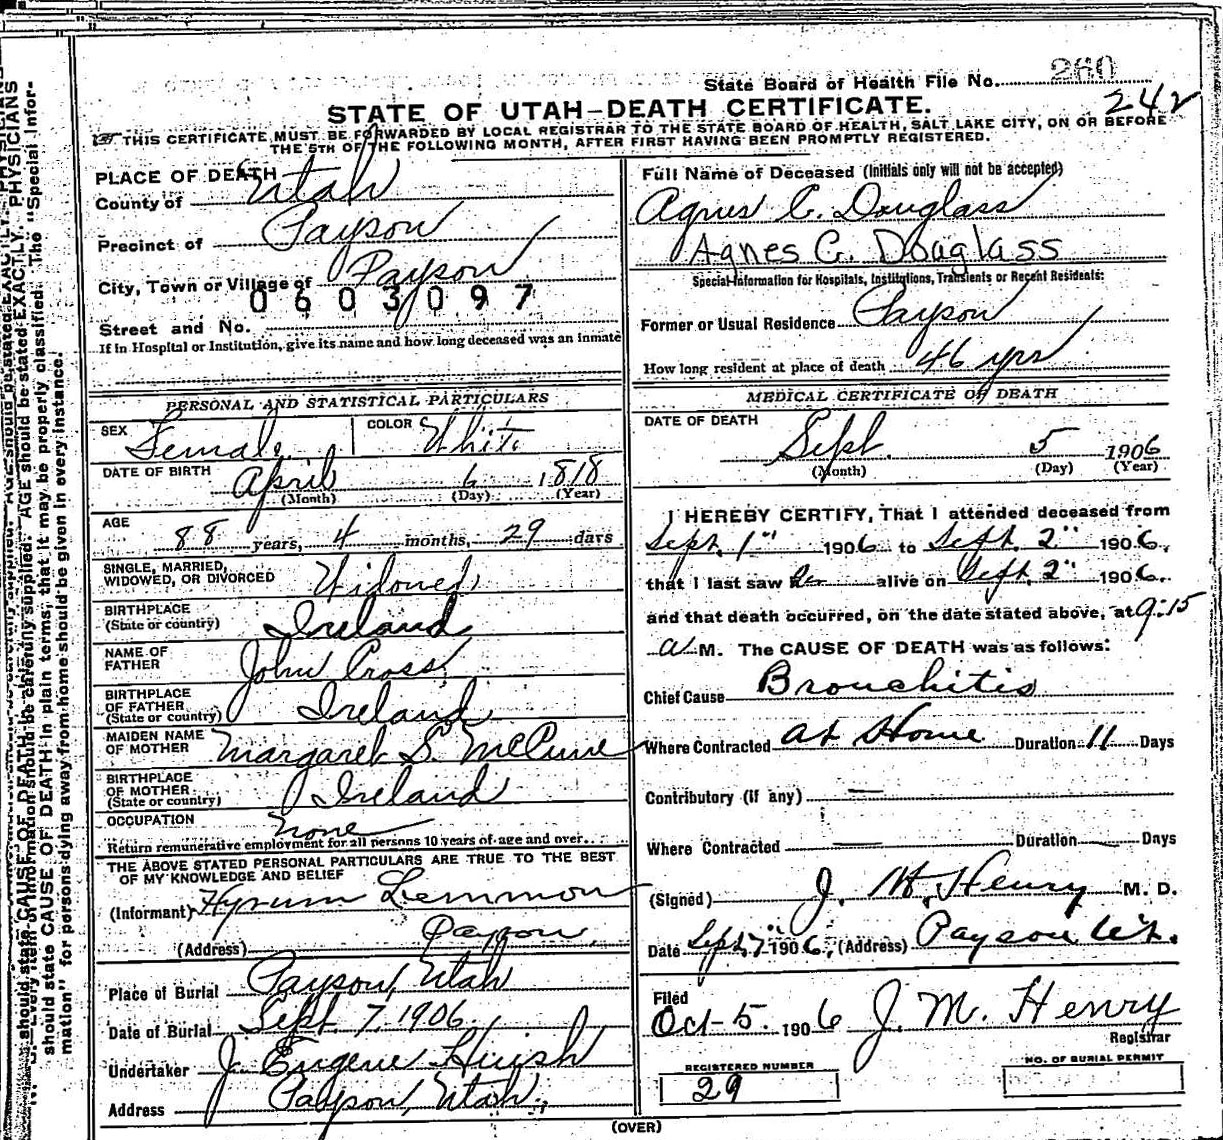 State Board of Health File No. 260
242
STATE OF UTAH—DEATH CERTIFICATE.
THIS CERTIFICATE MUST BE FORWARDED BY LOCAL REGISTRAR TO THE STATE BOARD OF HEALTH, SALT LAKE CITY, ON OR BEFORE
THE 5TH OF THE FOLLOWING MONTH, AFTER FIRST HAVING BEEN PROMPTLY REGISTERED.
PLACE OF DEATH
County of Utah
Precinct of Payson
City, Town or Village of Payson
0603097
Street and No.
If in Hospital or Institution, give its name and how long deceased was an inmate
PERSONAL AND STATISTICAL PARTICULARS
SEX Female COLOR White
DATE OF BIRTH April 6 1818
(Month) (Day) (Year)
AGE
88 years, 4 months, 29 days
SINGLE, MARRIED,
WIDOWED, OR DIVORCED Widowed
BIRTHPLACE
(State or country) Ireland
NAME OF
FATHER John Cross
BIRTHPLACE
OF FATHER
(State or country) Ireland
MAIDEN NAME
OF MOTHER Margaret S. McCune
BIRTHPLACE
OF MOTHER
(State or country) Ireland
OCCUPATION none
Return remunerative employment for all persons 10 years of age and over
THE ABOVE STATED PERSONAL PARTICULARS ARE TRUE TO THE BEST
OF MY KNOWLEDGE AND BELIEF
(Informant) Hyrum Lemmon
(Address) Payson,
Place of Burial Payson, Utah
Date of Burial Sept. 7, 1906.
Undertaker J. Eugene Huish
Address Payson, Utah,
Full Name of Deceased (Initials only will not be accepted)
Agnes C. Douglass
Agnes C. Douglass
Special Information for Hospitals, Institutions, Transients or Recent Residents:
Former or Usual Residence Payson
How long resident at place of death 46 yrs
MEDICAL CERTIFICATE OF DEATH
DATE OF DEATH
Sept. 5 1906
(Month) (Day) (Year)
I HEREBY CERTIFY, That I attended deceased from
Sept. 1" 1906 to Sept. 2" 1906,
that I last saw alive on Sept. 2" 1906.
and that death occurred, on the date stated above, at 9:15
a M. The CAUSE OF DEATH was as follows:
Chief Cause Bronchitis
Where Contracted at Home Duration 11 Days
Contributory (if any) —
Where Contracted — Duration — Days
(Signed) J. M. Henry M. D.
Date Sept. 7" 1906, (Address) Payson Ut.
Filed
Oct-5. 1906 J. M. Henry
Registrar
REGISTERED NUMBER
29
NO. OF BURIAL PERMIT
(OVER)
should state CAUSE OF DEATH in plain terms, that it may be properly classified. The "Special Infor-
mation" for persons dying away from home should be given in every instance.